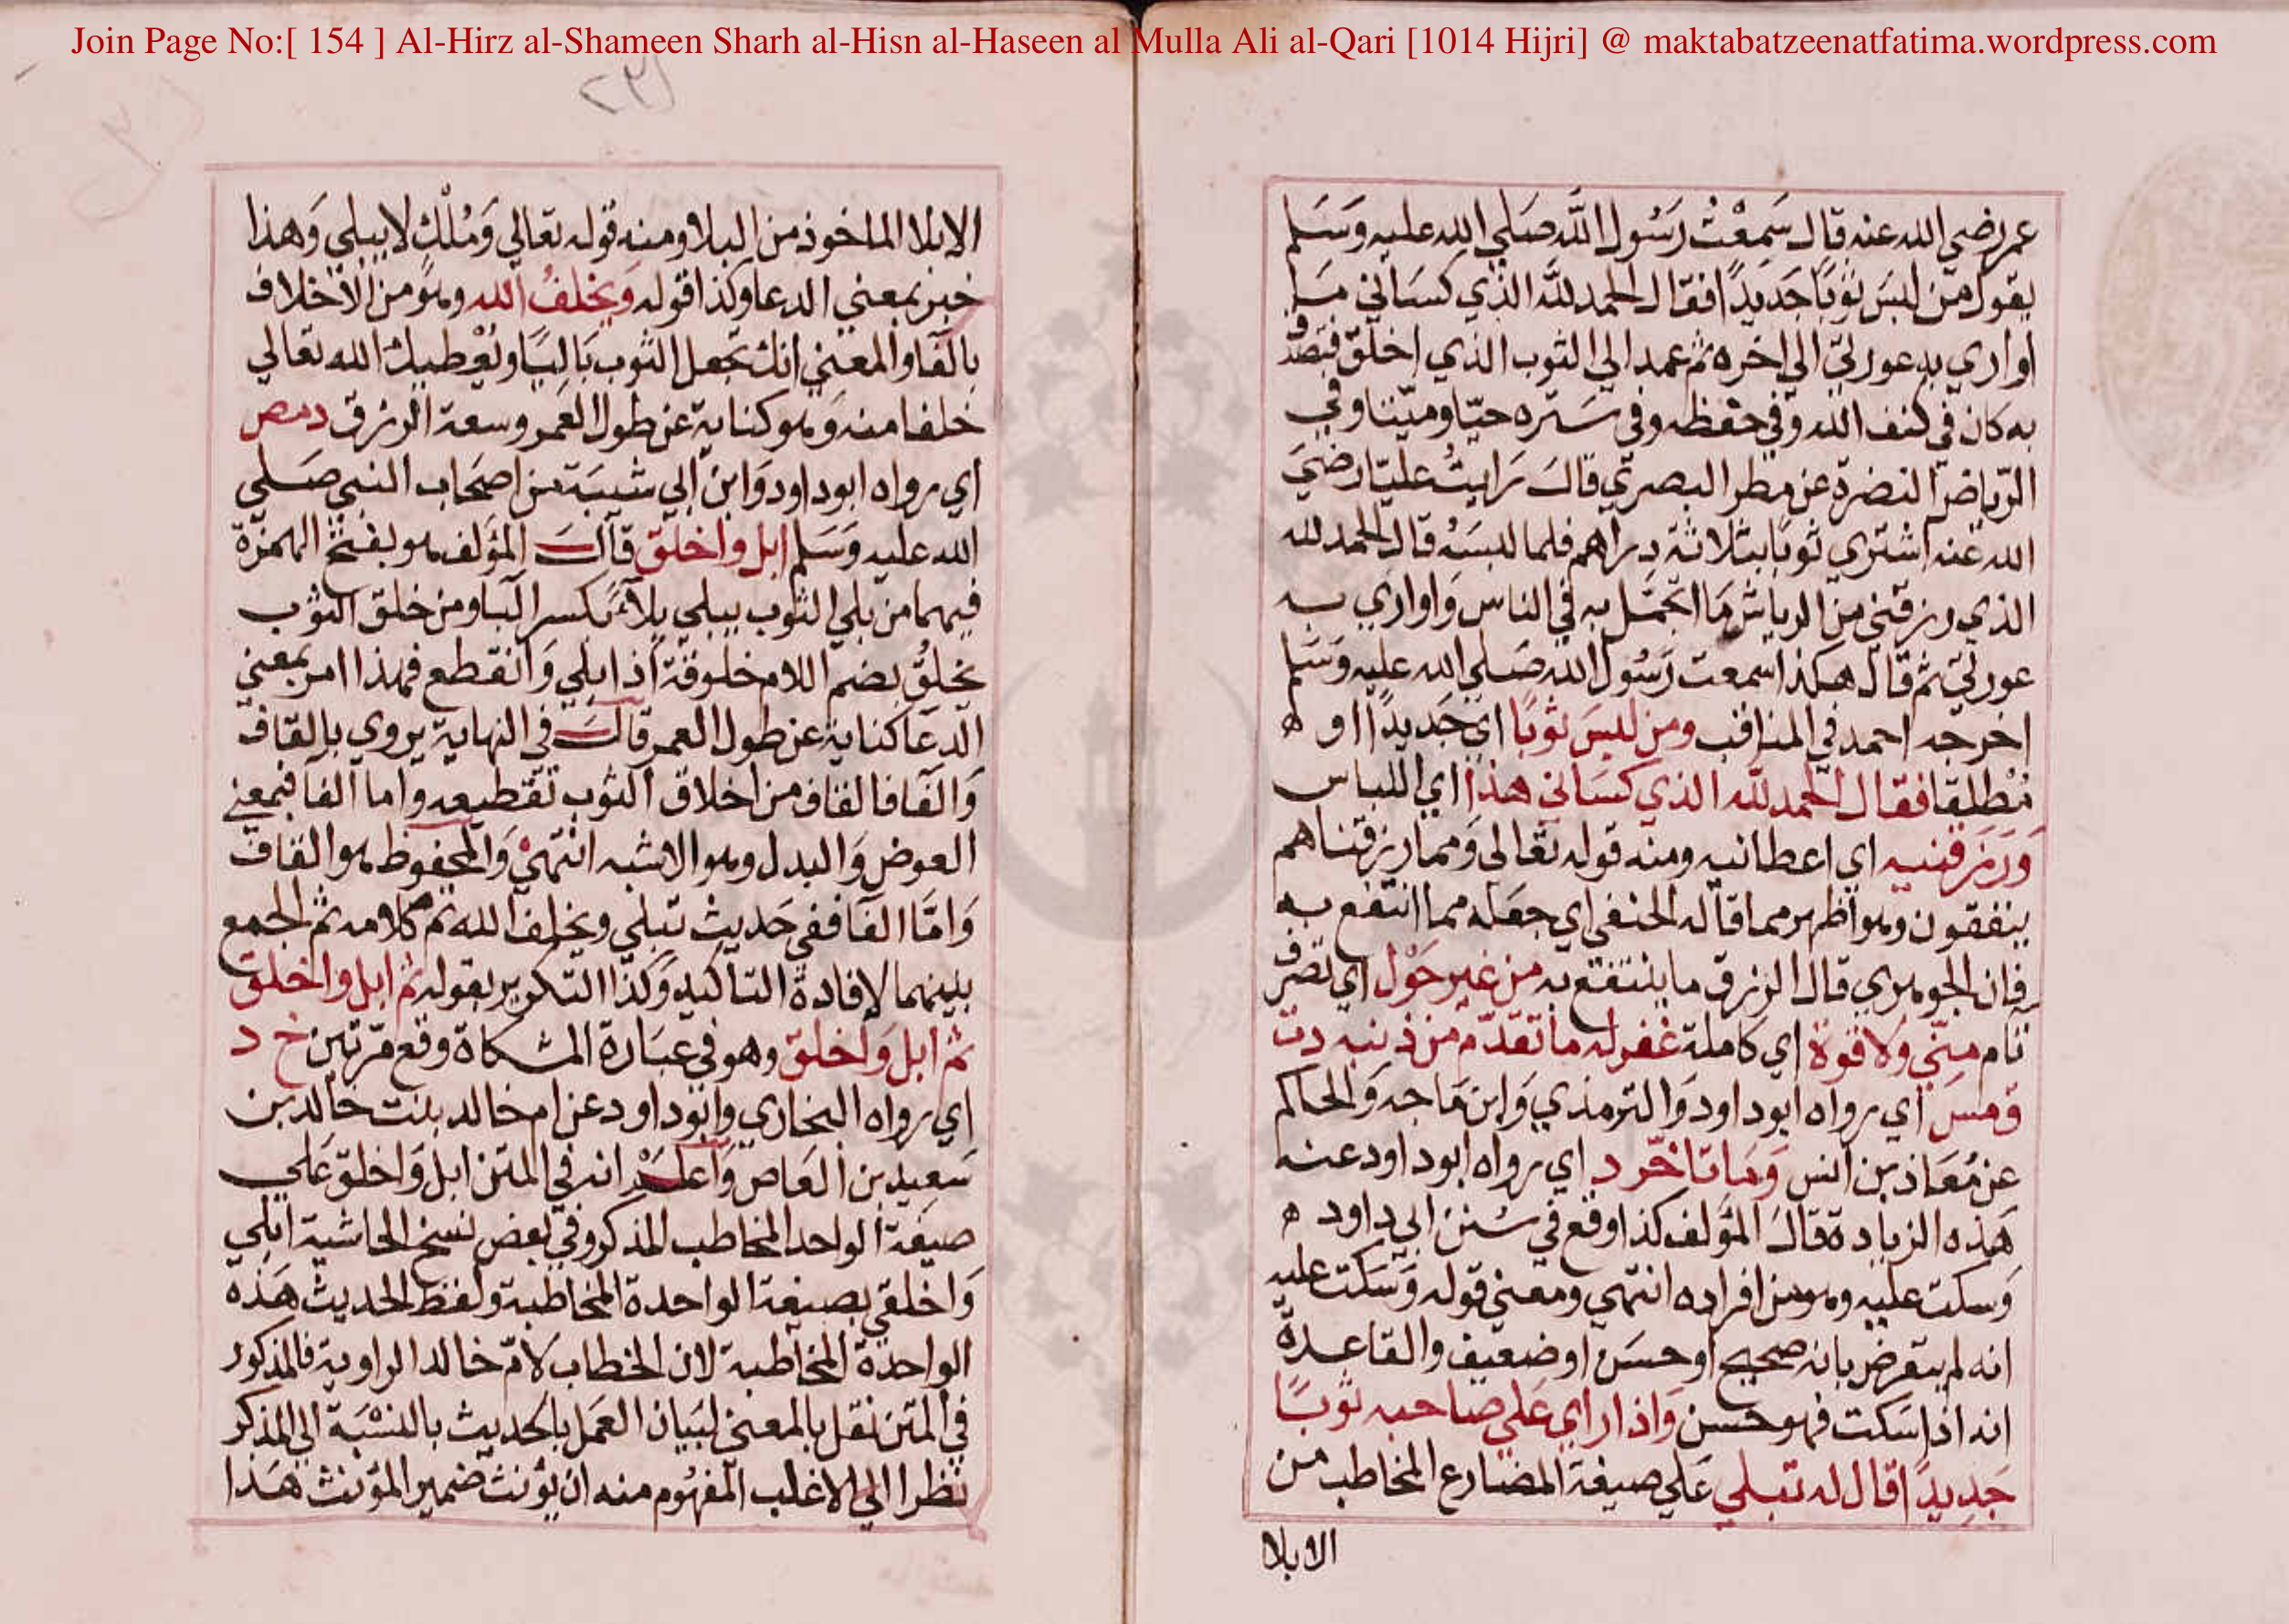 Join Page No:[ 154 ] Al-Hirz al-Shameen Sharh al-Hisn al-Haseen al Mulla Ali al-Qari [1014 Hijri] @ maktabatzeenatfatima.wordpress.com
عمر رضي الله عنه قال سَمِعْتُ رَسُول اللَّه صَلي الله عليه وَسَلم
يقول من لبسَ ثوبًا جَديدًا فقال الحمد للَّه الذي كسَاني مَا
اواري به عورتي الي اخره ثم عمد الي الثوب الذي اخلق فتصدق
به كان في كنف الله وفي حفظه وفي سَتره حيّا وميّتا وفي
الرّياض النضرة عن مطر البصري قال رايتُ عليّا رضيَ
الله عنه اشتري ثوبًا بثلاثة دراهم فلما لبسَهُ قال الحمد لله
الذي رزقني من الرياش مَا اتجمَّل به في الناس وَاواري به
عورتي ثم قال هكذا سمعت رَسُول الله صَلي الله عليه وَسَلم
اخرجه احمد في المناقب ومن لبسَ ثوبًا اي جَديدًا او ه
مُطلقا فقال الحمد للَّه الذي كسَاني هذا اي اللباس
وَرَزَقنيه اي اعطانيه ومنه قوله تعَالى وَمما رزقناهم
ينفقون وهو اظهر مما قاله الحنفي اي جعَله مما انتفع به
فان الجوهري قال الرزق ما ينتفع به من غير حَوْل اي تصرف
تام منّي ولا قوة اي كاملة غفر له ما تقدّم من ذنبه دت
ق مس اي رواه ابو داود وَالترمذي وَابن مَاجه وَالحاكم
عن مُعَاذ بن انس وَمَا تاخّر د اي رواه ابو داود عنه
هَذه الزيادة قالَ المؤلف كذا وقع في سُنن ابي داود ه
وَسكت عليه وهو من افراده انتهي ومعني قوله وَسَكت عليه
انه لم يتعرض بانه صحيح او حسَن او ضعيف والقاعدة
انه اذا سَكت فهو حسَن وَاذا راي عَلي صاحبه ثوبًا
جَديدًا قال له تبلي عَلي صيغة المضارع المخاطب من
الابلا
الابلا الماخوذ من البلا ومنه قوله تعَالي وَمُلْكٍ لا يبلي وَهذا
خبر بمعني الدعا وكذا قوله وَيخلفُ الله وهو من الاخلاف
بالفا والمعني انك تجعل الثوب بَالِيًا ويُعْطيك الله تعَالي
خلفا منه وَهو كناية عن طول العمر وسعة الرزق د مص
اي رواه ابو داود وَابن ابي شيبَة عن اصحَاب النبي صَلي
الله عليه وَسَلم ابل واخلق قالَ المؤلف هو بفتح الهمزة
فيهما من بلي الثوب يبلي بِلآءً بكسر البَا ومن خلق الثوب
يخلُقُ بضم اللام خلوقة اذا بلي وَانقطع فهذا امر بمعني
الدّعَا كناية عن طول العمر قالَ في النهاية يروي بالقاف
وَالفَا فالقاف من اخلاق الثوب تقطيعه واما الفا فبمعني
العوض وَالبدل وهو الاشبه انتهيْ وَالمحفوظ هو القاف
وَامَّا الفَا ففي حَديث تبلي ويخلف الله تم كلامه ثم الجمع
بينهما لافادة التاكيد وَكذا التكرير بقوله ثم ابل واخلق
ثم ابل وَاخلق وهو في عبَارة المشكاة وقع مَرّتين خ د
اي رواه البخاري وابو داود عن ام خالد بنت خالد بن
سَعيد بن العَاص وَاعلَمْ انه في المتن ابل وَاخلق عَلي
صيغة الواحد المخاطب المذكر وفي بَعض نسخ الحاشية ابلي
وَاخلقي بصيغة الواحدة المخاطبة ولفظ الحديث هَذه
الواحدة المخاطبة لان الخطاب لامّ خالد الراوية فالمذكور
في المتن نقل بالمعني لبَيان العَمل بالحديث بالنسْبَة الي المذكر
نظرا الي الاغلب المفهُوم منه ان يؤنث ضمير المؤنث هَذا